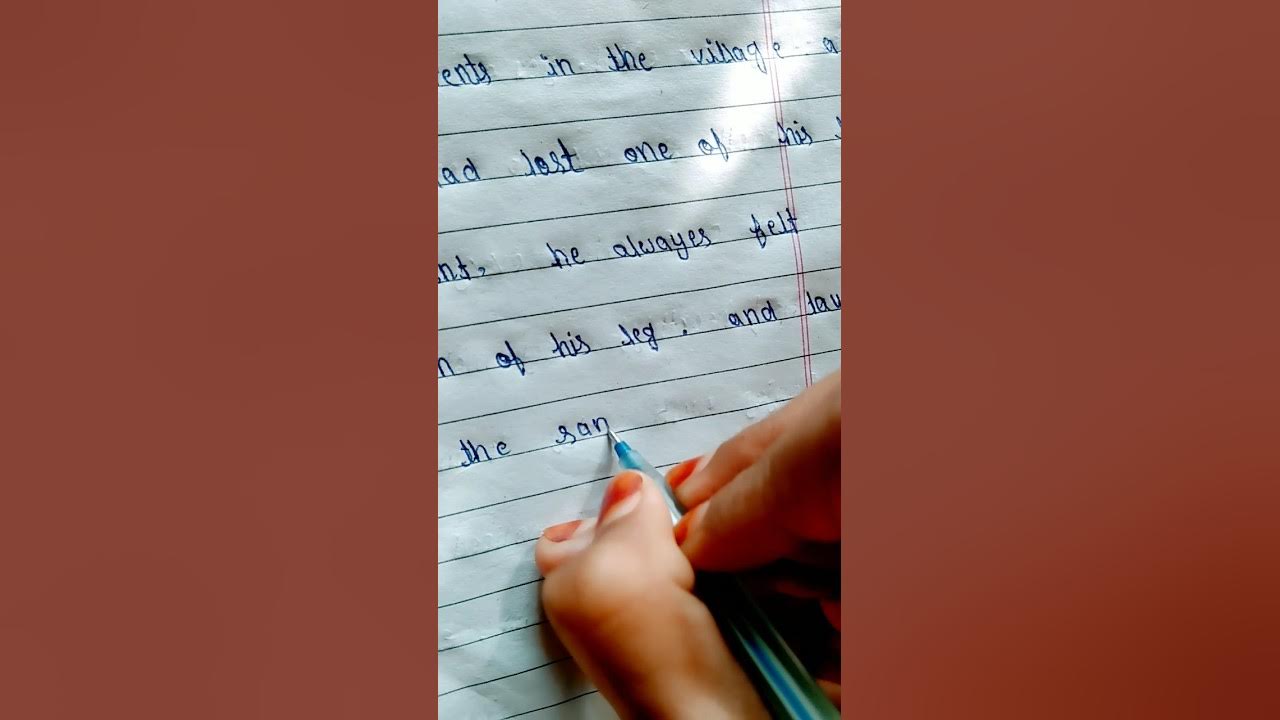 ents in the village a
ad lost one of his
nt, he alwayes felt
n of his leg. and lau
the san